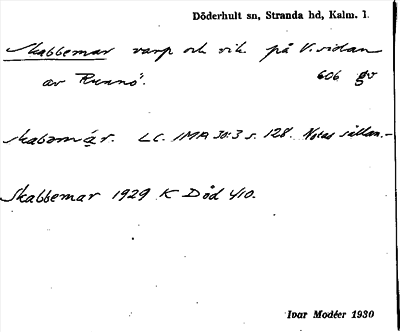 Döderhult sn, Stranda hd, Kalm. l.
Skabbemar varp och vik på V. sidan
av Runnö. 606 gv
skabəmár. LC. IMA 30:3 s. 128. Notas sällan.-
Skabbemar 1929 K Död 410.
Ivar Modéer 1930